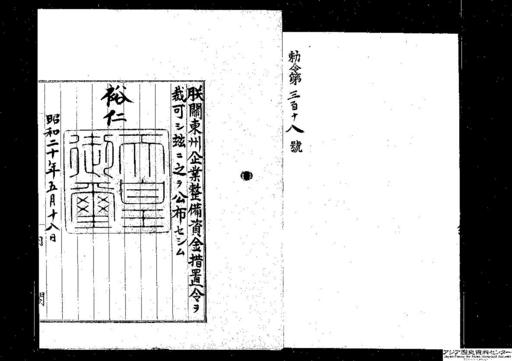 勅令第三百十八號
朕關東州企業整備資金措置令ヲ
裁可シ玆ニ之ヲ公布セシム
裕仁
天皇御璽
昭和二十年五月十八日
アジア歴史資料センター